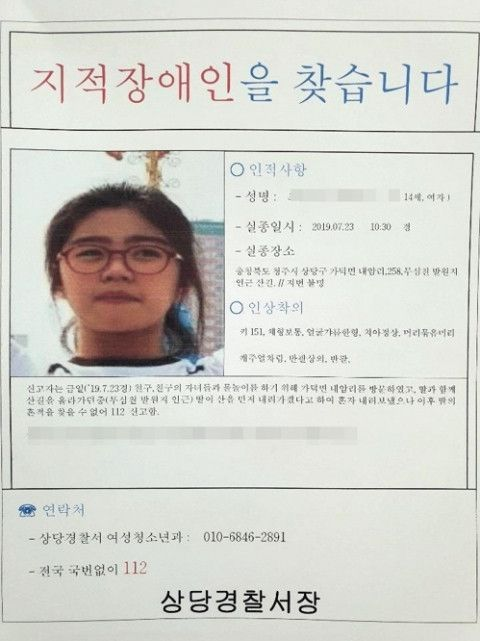 지적장애인을 찾습니다
○ 인적사항
- 성명 : 14세, 여자 )
- 실종일시 : 2019.07.23 10:30 경
- 실종장소
충청북도 청주시 상당구 가덕면 내암리,258,무심천 발원지
인근 산길. // 지번 불명
○ 인상착의
키 151, 체형보통, 얼굴갸름한형, 치아정상, 머리묶음머리
캐주얼차림, 반팔상의, 반팔,
신고자는 금일('19.7.23경) 친구,친구의 자녀들과 물놀이를 하기 위해 가덕면 내암리를 방문하였고, 딸과 함께
산길을 올라가던중(무심천 발원지 인근) 딸이 산을 먼저 내려가겠다고 하여 혼자 내려보냈으나 이후 딸의
흔적을 찾을 수 없어 112 신고함.
☎ 연락처
- 상당경찰서 여성청소년과 : 010-6846-2891
- 전국 국번없이 112
상당경찰서장